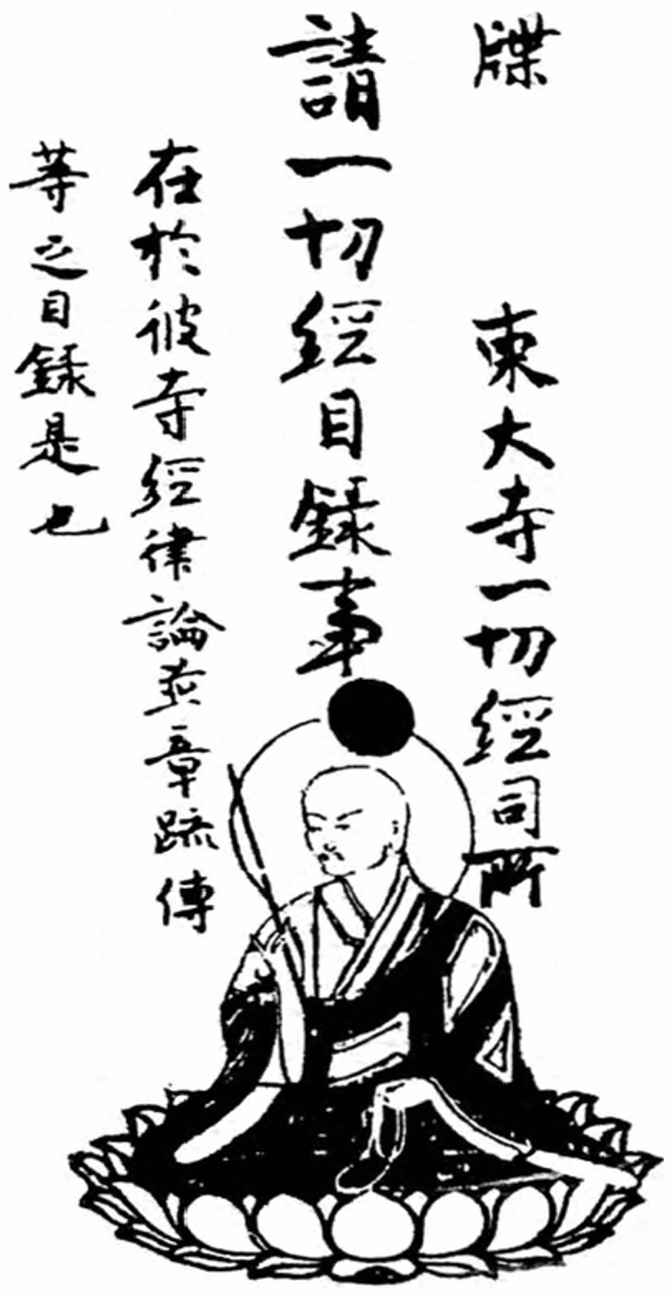 牒 東大寺一切經司所
請一切經目錄事
在於彼寺經律論并章疏傳
等之目錄是也